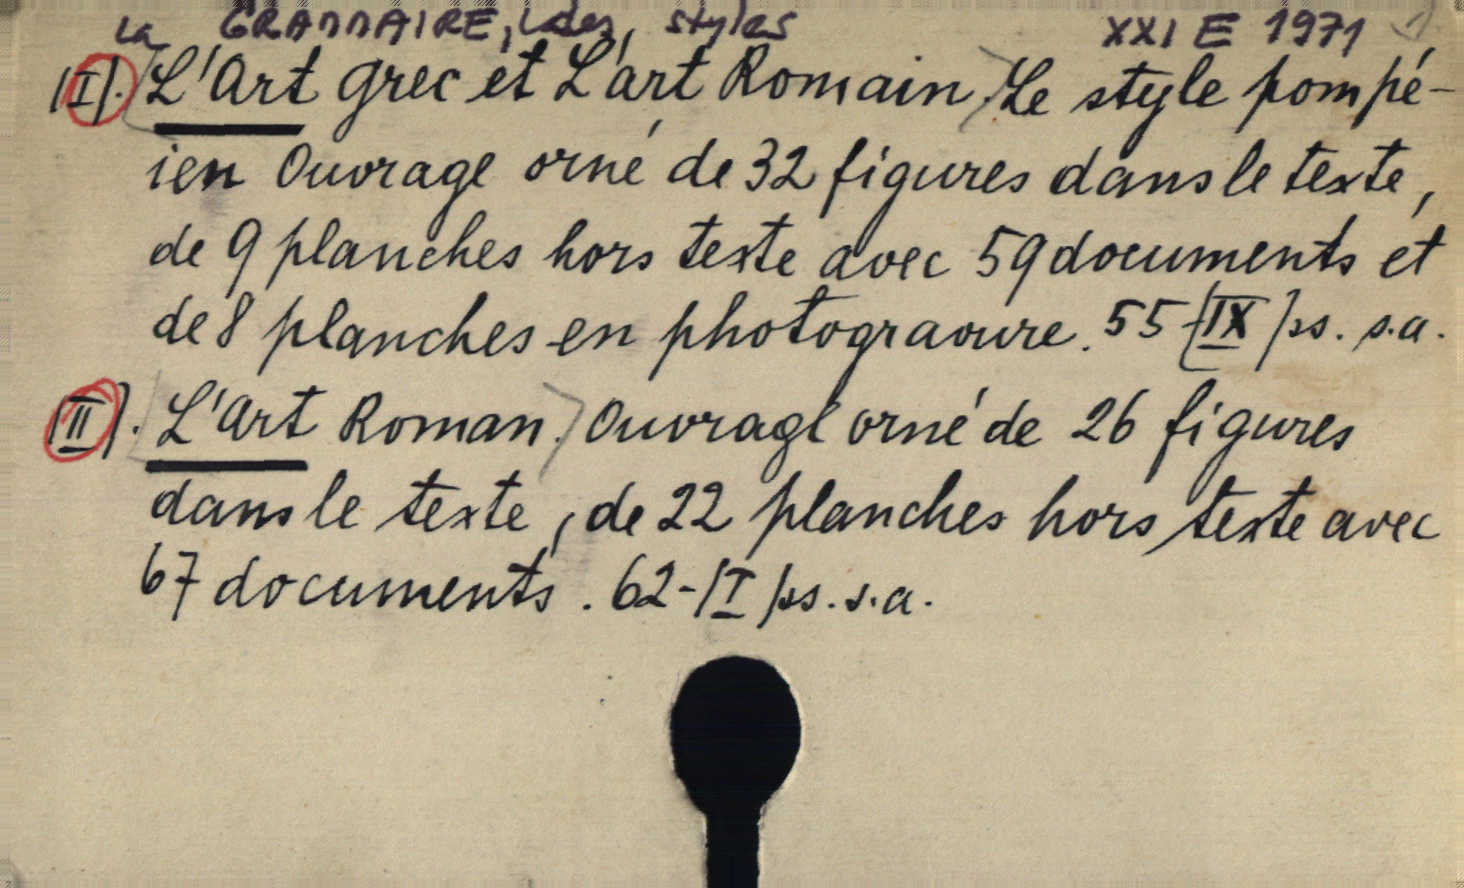 La GRAMMAIRE, des styles XXI E 1971 1)
[I]. L'Art grec et L'art Romain. Le style pompé-
ien Ouvrage orné de 32 figures dans le texte,
de 9 planches hors texte avec 59 documents et
de 8 planches en photogravure. 55-[IX] ss. s.a.
[II]. L'Art Roman. Ouvrage orné de 26 figures
dans le texte, de 22 planches hors texte avec
67 documents. 62-[I] ss. s.a.